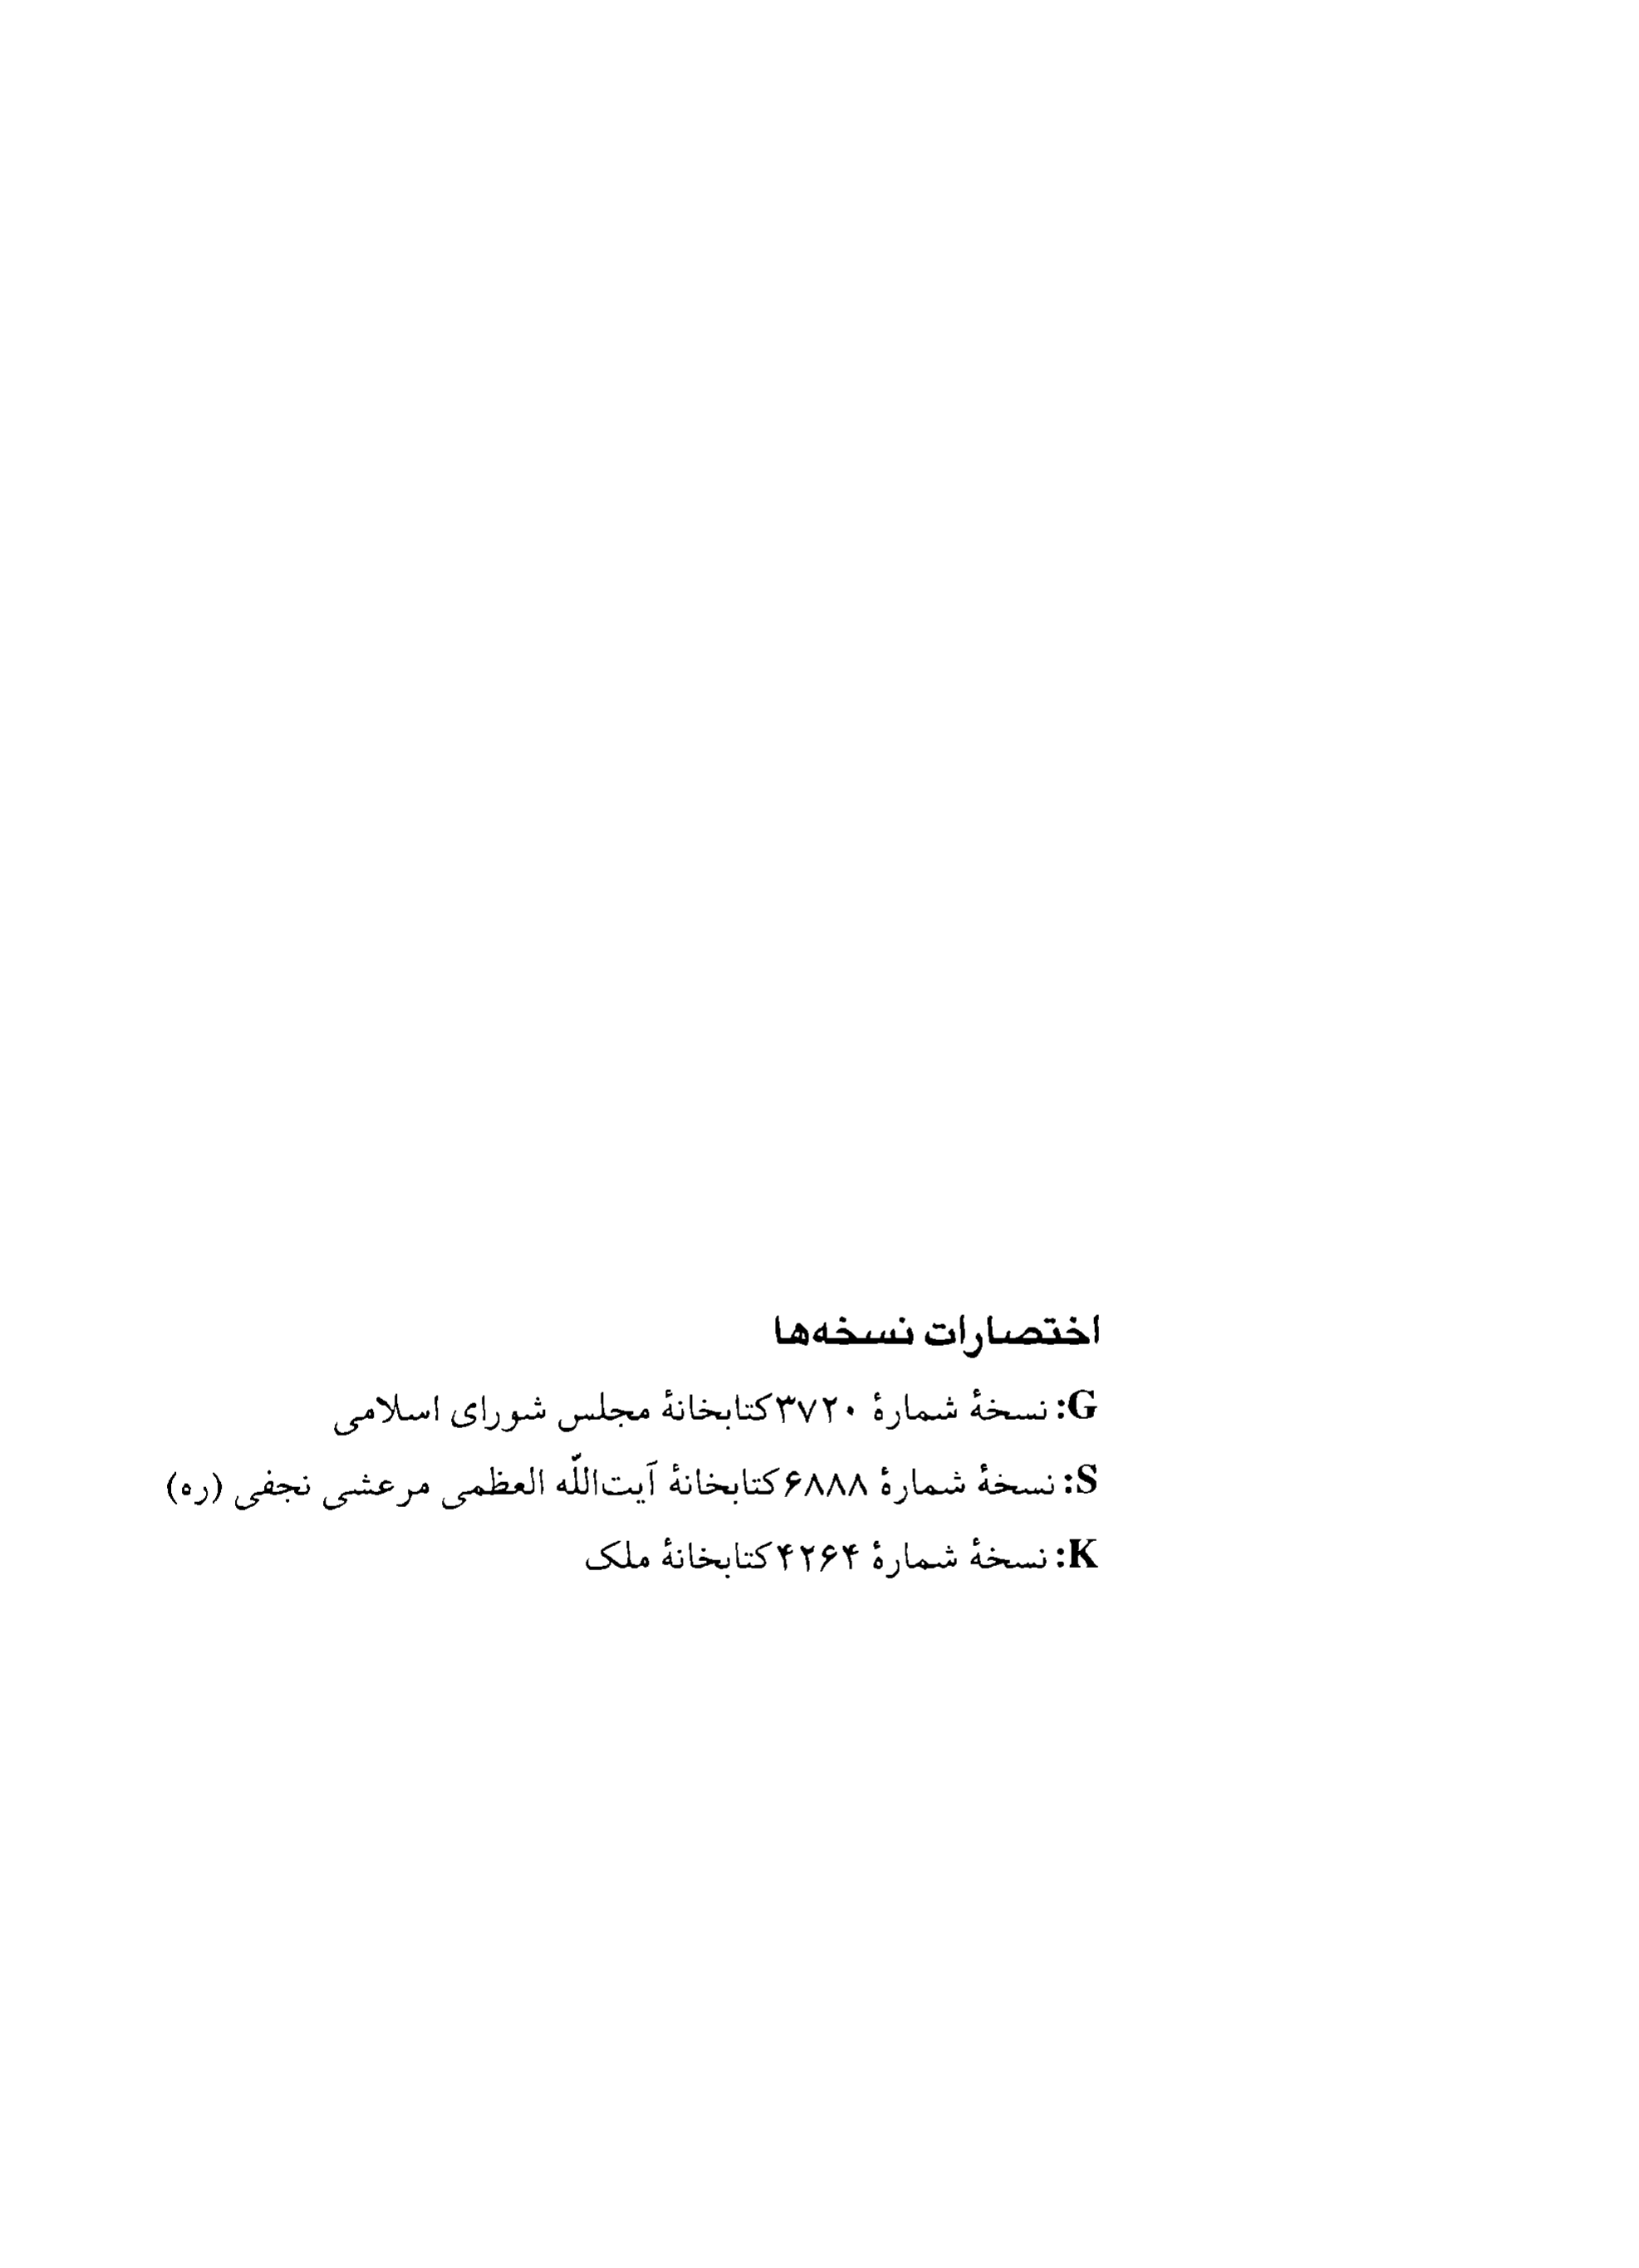 اختصارات نسخه‌ها
G: نسخهٔ شمارهٔ ۳۷۲۰ کتابخانهٔ مجلس شورای اسلامی
S: نسخهٔ شمارهٔ ۶۸۸۸ کتابخانهٔ آیت‌اللّه العظمی مرعشی نجفی (ره)
K: نسخهٔ شمارهٔ ۴۲۶۴ کتابخانهٔ ملک